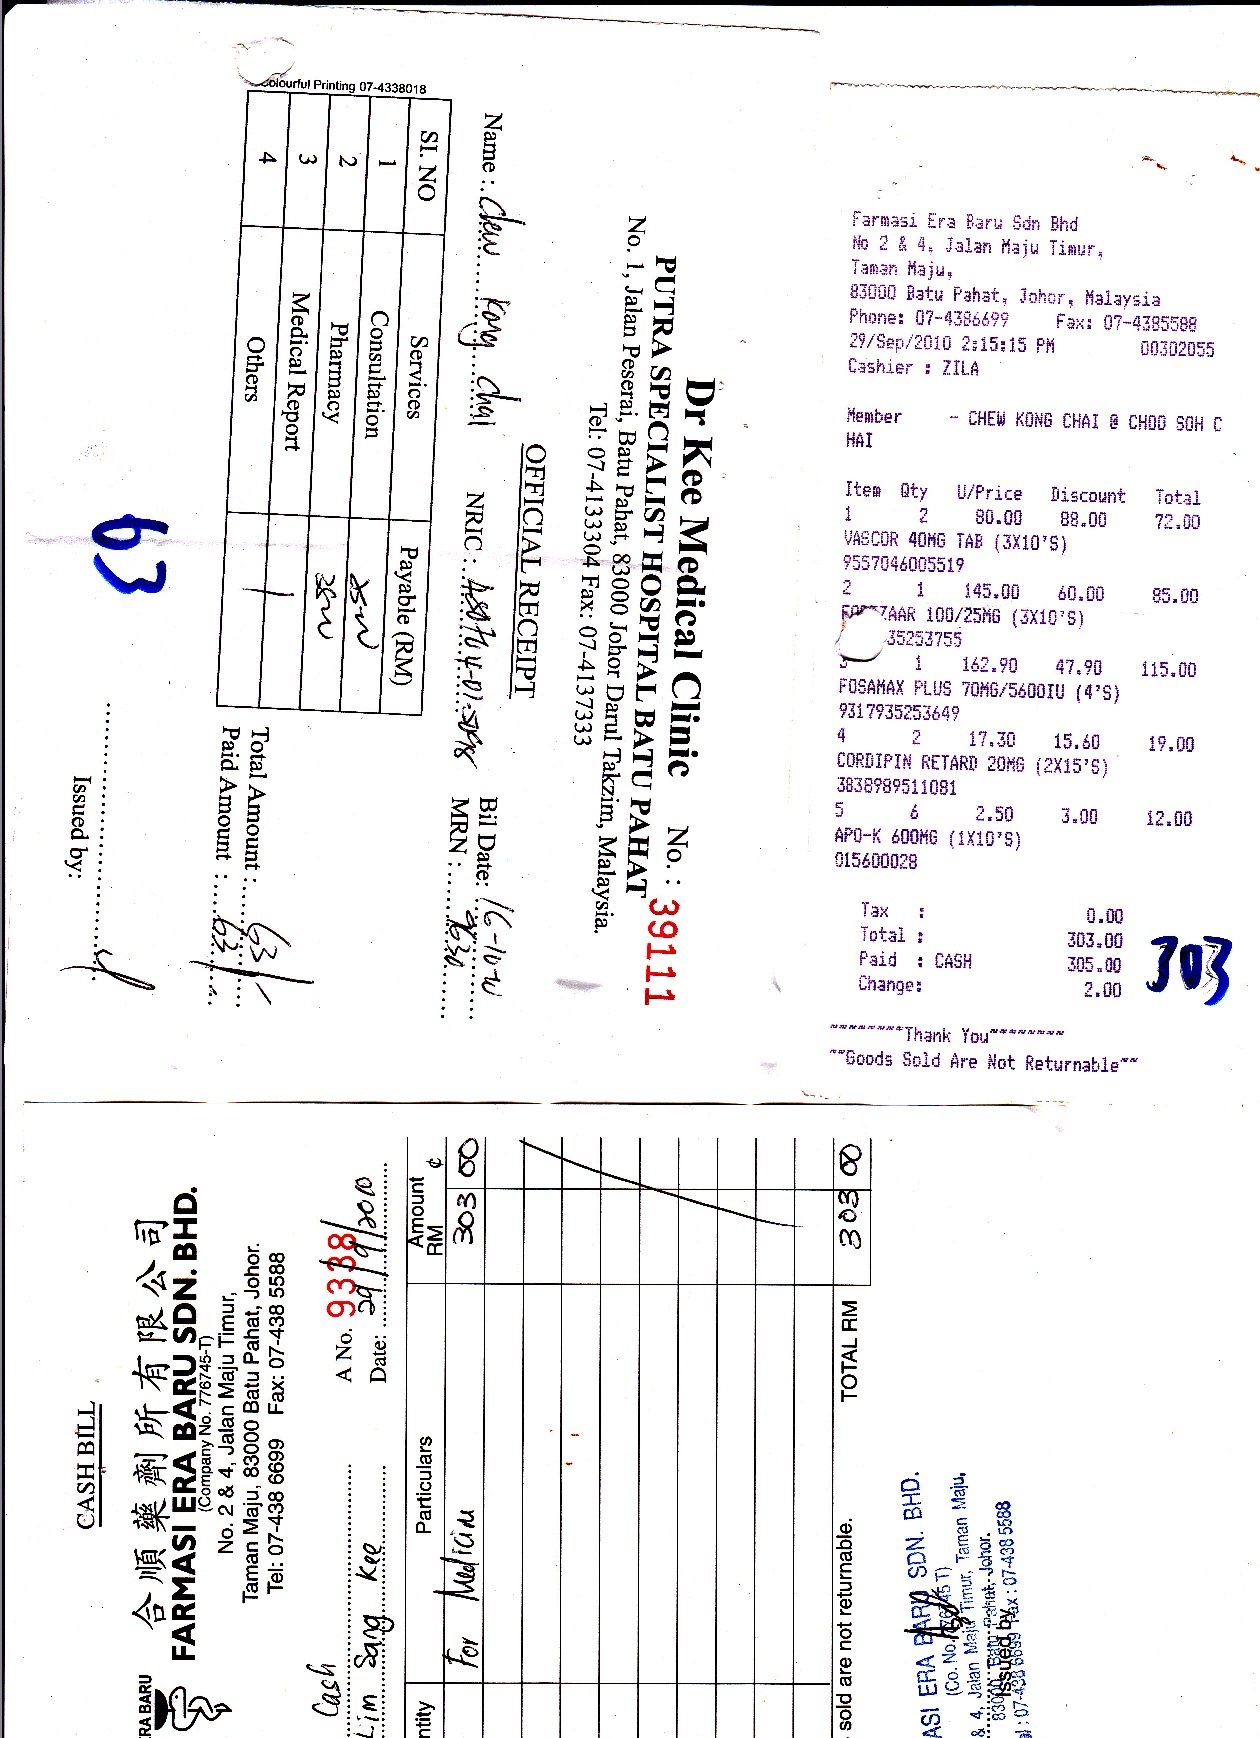 Colourful Printing 07-4338018
Dr Kee Medical Clinic No. : 39111
PUTRA SPECIALIST HOSPITAL BATU PAHAT
No. 1, Jalan Peserai, Batu Pahat, 83000 Johor Darul Takzim, Malaysia.
Tel: 07-4133304 Fax: 07-4137333
OFFICIAL RECEIPT
Name : Chew Kong Chai NRIC : Bil Date: 16-10-10
MRN : 9630
SI. NO Services Payable (RM)
1 Consultation
2 Pharmacy
3 Medical Report
4 Others
Total Amount : 63/-
Paid Amount : 63/-
Issued by:
63
Farmasi Era Baru Sdn Bhd
No 2 & 4, Jalan Maju Timur,
Taman Maju,
83000 Batu Pahat, Johor, Malaysia
Phone: 07-4386699 Fax: 07-4385588
29/Sep/2010 2:15:15 PM 00302055
Cashier : ZILA
Member - CHEW KONG CHAI @ CHOO SOH C
HAI
Item Qty U/Price Discount Total
1 2 80.00 88.00 72.00
VASCOR 40MG TAB (3X10'S)
9557046005519
2 1 145.00 60.00 85.00
100/25MG (3X10'S)
35253755
3 1 162.90 47.90 115.00
FOSAMAX PLUS 70MG/5600IU (4'S)
9317935253649
4 2 17.30 15.60 19.00
CORDIPIN RETARD 20MG (2X15'S)
3838989511081
5 6 2.50 3.00 12.00
APO-K 600MG (1X10'S)
015600028
Tax : 0.00
Total : 303.00
Paid : CASH 305.00
Change: 2.00
303
~~~~~~~~Thank You~~~~~~~~
~~Goods Sold Are Not Returnable~~
CASH BILL
合順藥劑所有限公司
FARMASI ERA BARU SDN. BHD.
(Company No. 776745-T)
No. 2 & 4, Jalan Maju Timur,
Taman Maju, 83000 Batu Pahat, Johor.
Tel: 07-438 6699 Fax: 07-438 5588
ERA BARU
Cash A No. 9338
Lim Sang Kee Date: 29/9/2010
ntity Particulars Amount
RM ¢
For Medicine 303 00
sold are not returnable. TOTAL RM 303 00
ASI ERA BARU SDN. BHD.
(Co. No. 776745 T)
& 4, Jalan Maju Timur, Taman Maju,
83000 Batu Pahat, Johor.
Issued by
: 07-438 6699 Fax : 07-438 5588